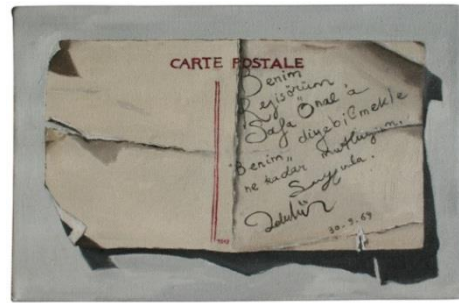 CARTE POSTALE
Benim
Rejisörüm
Safa Önal'a
"Benim" diyebilmekle
ne kadar mutluyum.
Saygıyla.
30-9-69